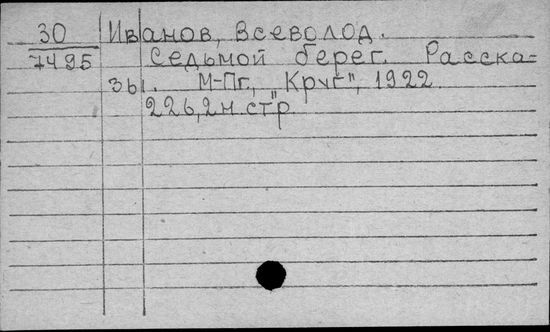 30 Иванов, Всеволод.
7495 Седьмой берег. Расска-
зы. М-Пг., "Круг", 1922.
226,2н.стр.